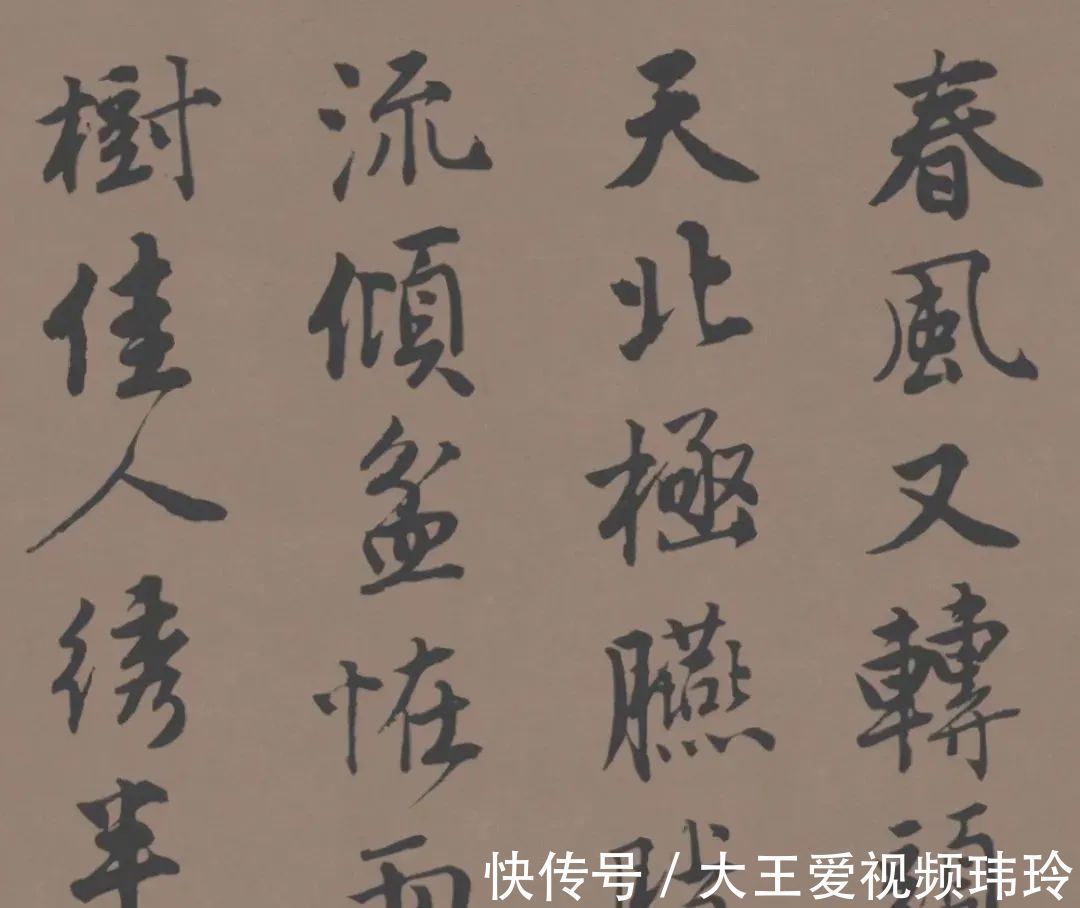 春風又轉
天北極臙
流傾盆恠
樹佳人綉半
快传号 / 大王爱视频玮玲